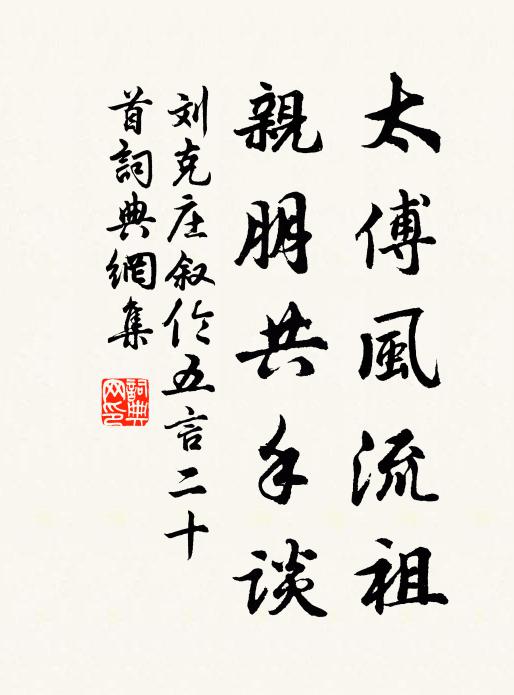 太傅風流祖
親朋共手談
刘克庄叙伦五言二十
首詞典網集
詞典
网印